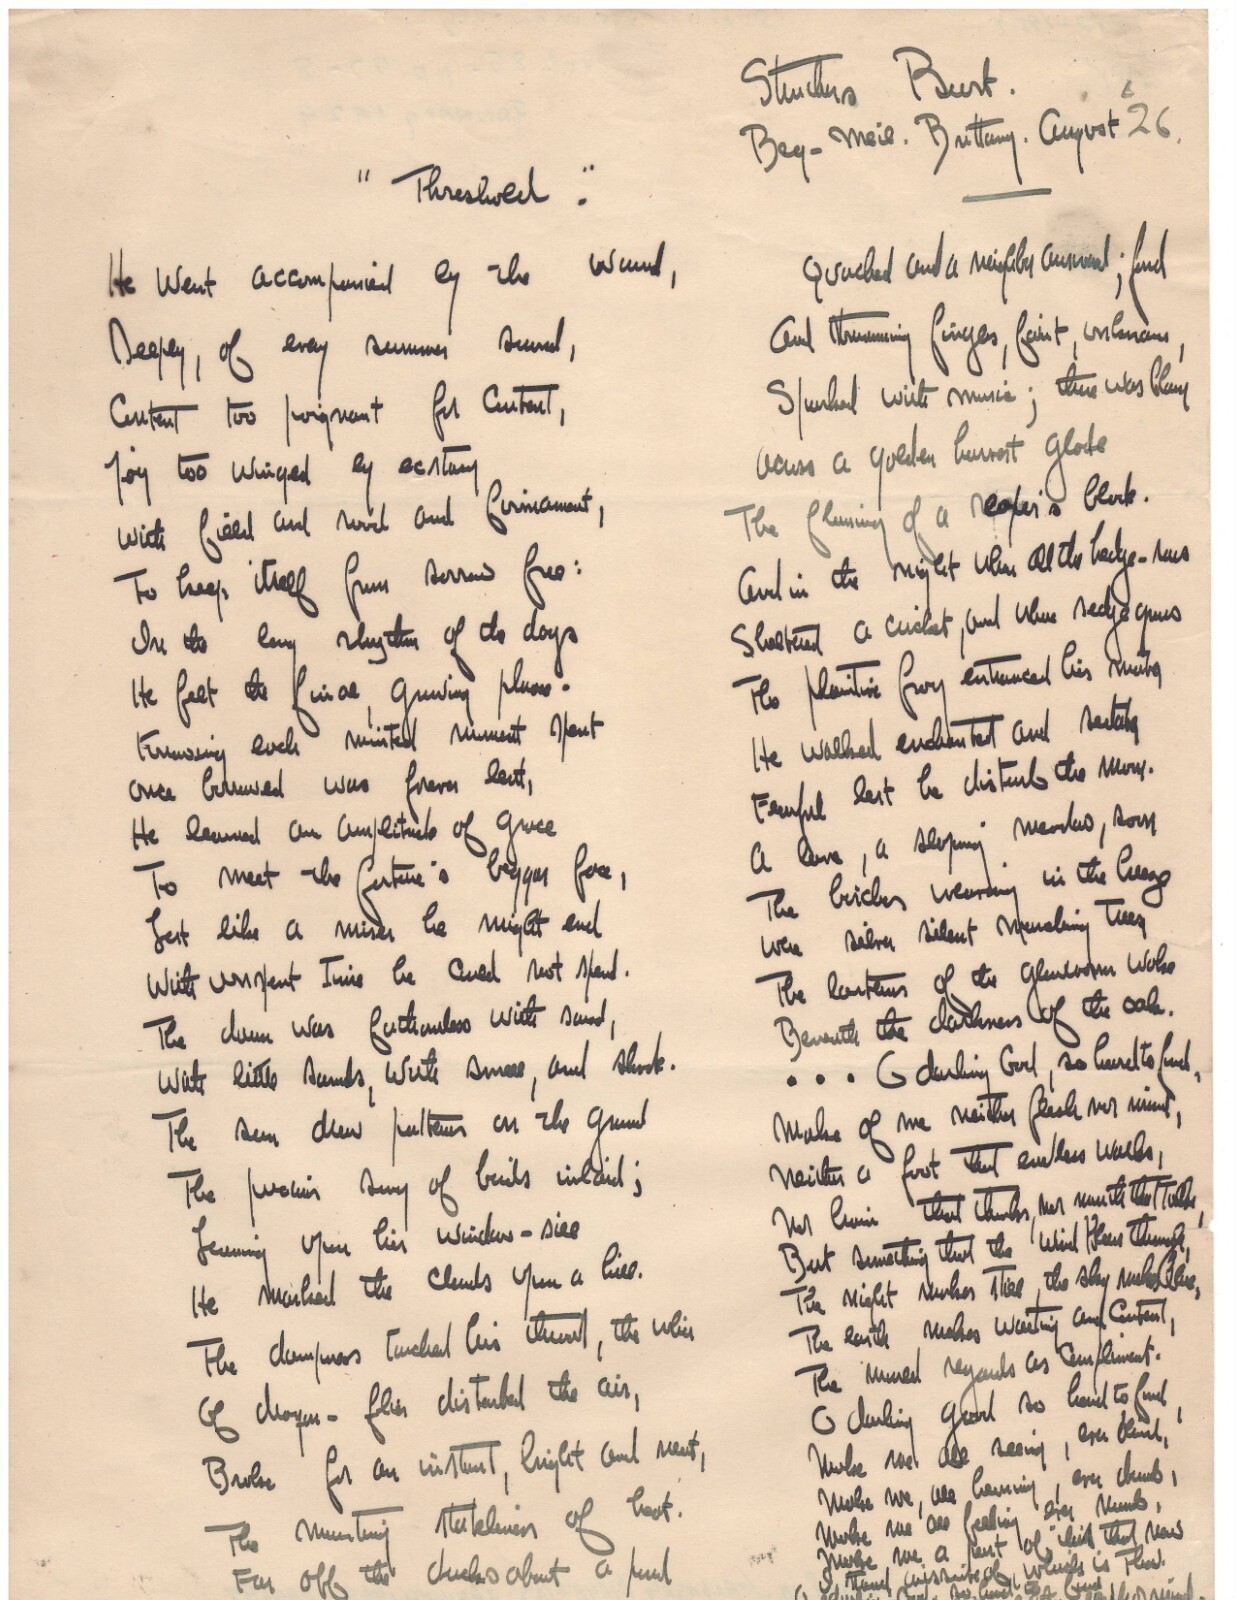 Struthers Burt.
Beg-Meil. Brittany. August '26.
"Threshold".
He went accompanied by the wound,
Deeply, of every summer sound,
Content too poignant for content,
Joy too winged by ecstasy
With field and wood and firmament,
To keep itself from sorrow free:
In the long rhythm of the days
He felt the final, growing phase.
Knowing each minted moment spent
Once borrowed was forever lent,
He learned an amplitude of grace
To meet the fortune's beggar face,
Lest like a miser he might end
With unspent Time he could not spend.
The dawn was fathomless with sound,
With little sounds, with small, and shook.
The sun drew patterns on the ground
The precise song of birds inlaid;
Leaning upon his window-sill
He marked the clouds upon a hill.
The dampness touched his throat, the whir
Of dragon-flies disturbed the air,
Broke for an instant, bright and neat,
The mounting stateliness of heat.
Far off the ducks about a pond
Quacked and a neighbor answered; fond
And thrumming fingers, faint,
Sparked with music; there was
Across a golden harvest glade
The flaming of a reaper's blade.
And in the night when all the hedge-rows
Sheltered a cricket, and when sedge grows
The plaintive frog entranced his
He walked enchanted and
Fearful lest he disturb the
A lane, a sleeping meadow,
The birches wearing in the breeze
Were silver silent marching trees
The lanterns of the glowworm woke
Beneath the darkness of the oak.
... O darling God, so hard to find,
Make of me neither flesh nor mind,
Neither a foot that endless walks,
Nor brain that thinks, nor mouth that talks,
But something that the wind blows through,
The night makes still, the sky makes blue,
The earth makes waiting and content,
The regards as compliment.
O darling good so hard to find,
Make me all seeing, ever blind,
Make me, all hearing, ever dumb,
Make me all feeling ever numb,
Make me a part of that now